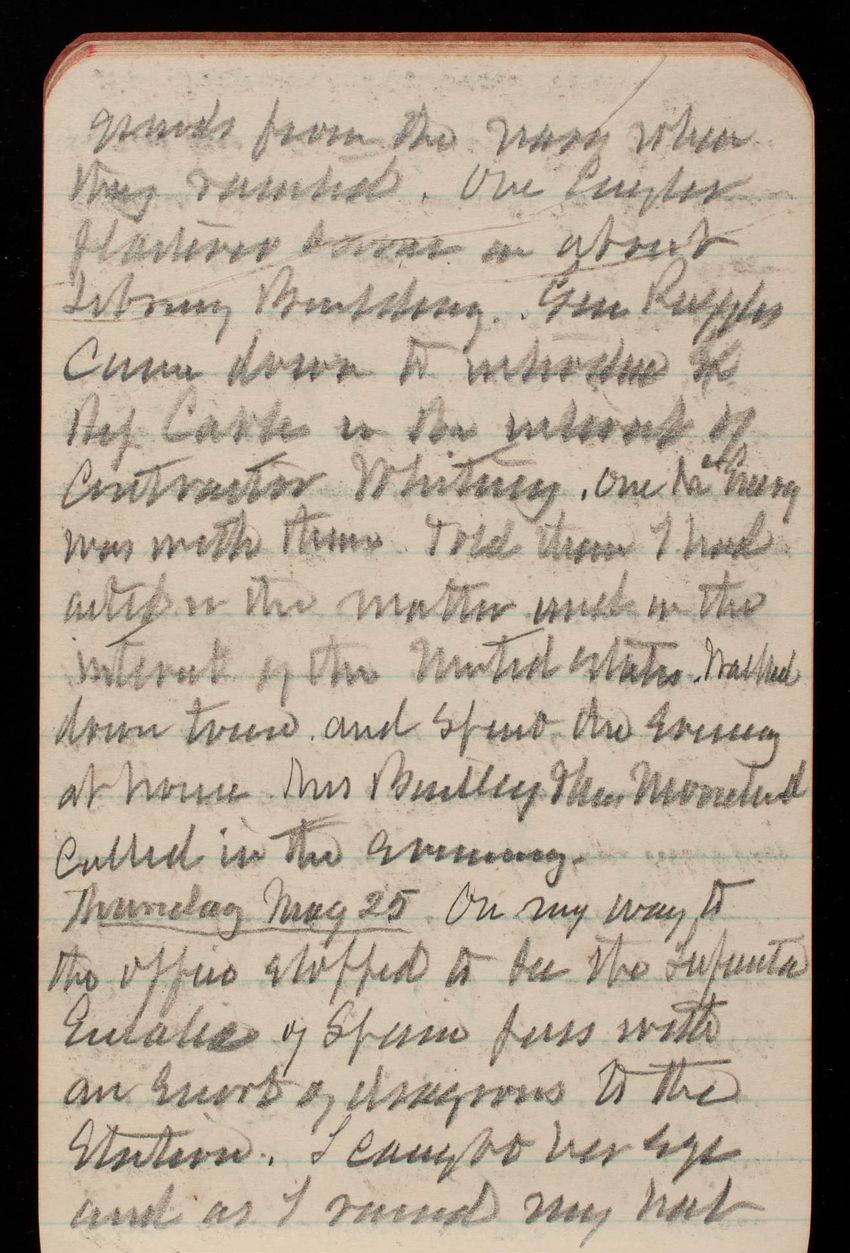 from the navy when
they One
plasterer in about
Library Building. Gen Ruggles
Came down to introduce Ex
Rep Cable in the interest of
Contractor Whitney. One
was with them. Told them I had
acted in the matter and in the
interest of the United States. Walked
down town and spent the evening
at home. Mrs
Called in the evening.
Thursday May 25 On my way to
the office stopped to see the Infanta
Eulalie of Spain pass with
an Escort of dragoons to the
Station. I caught her eye
and as I raised my hat